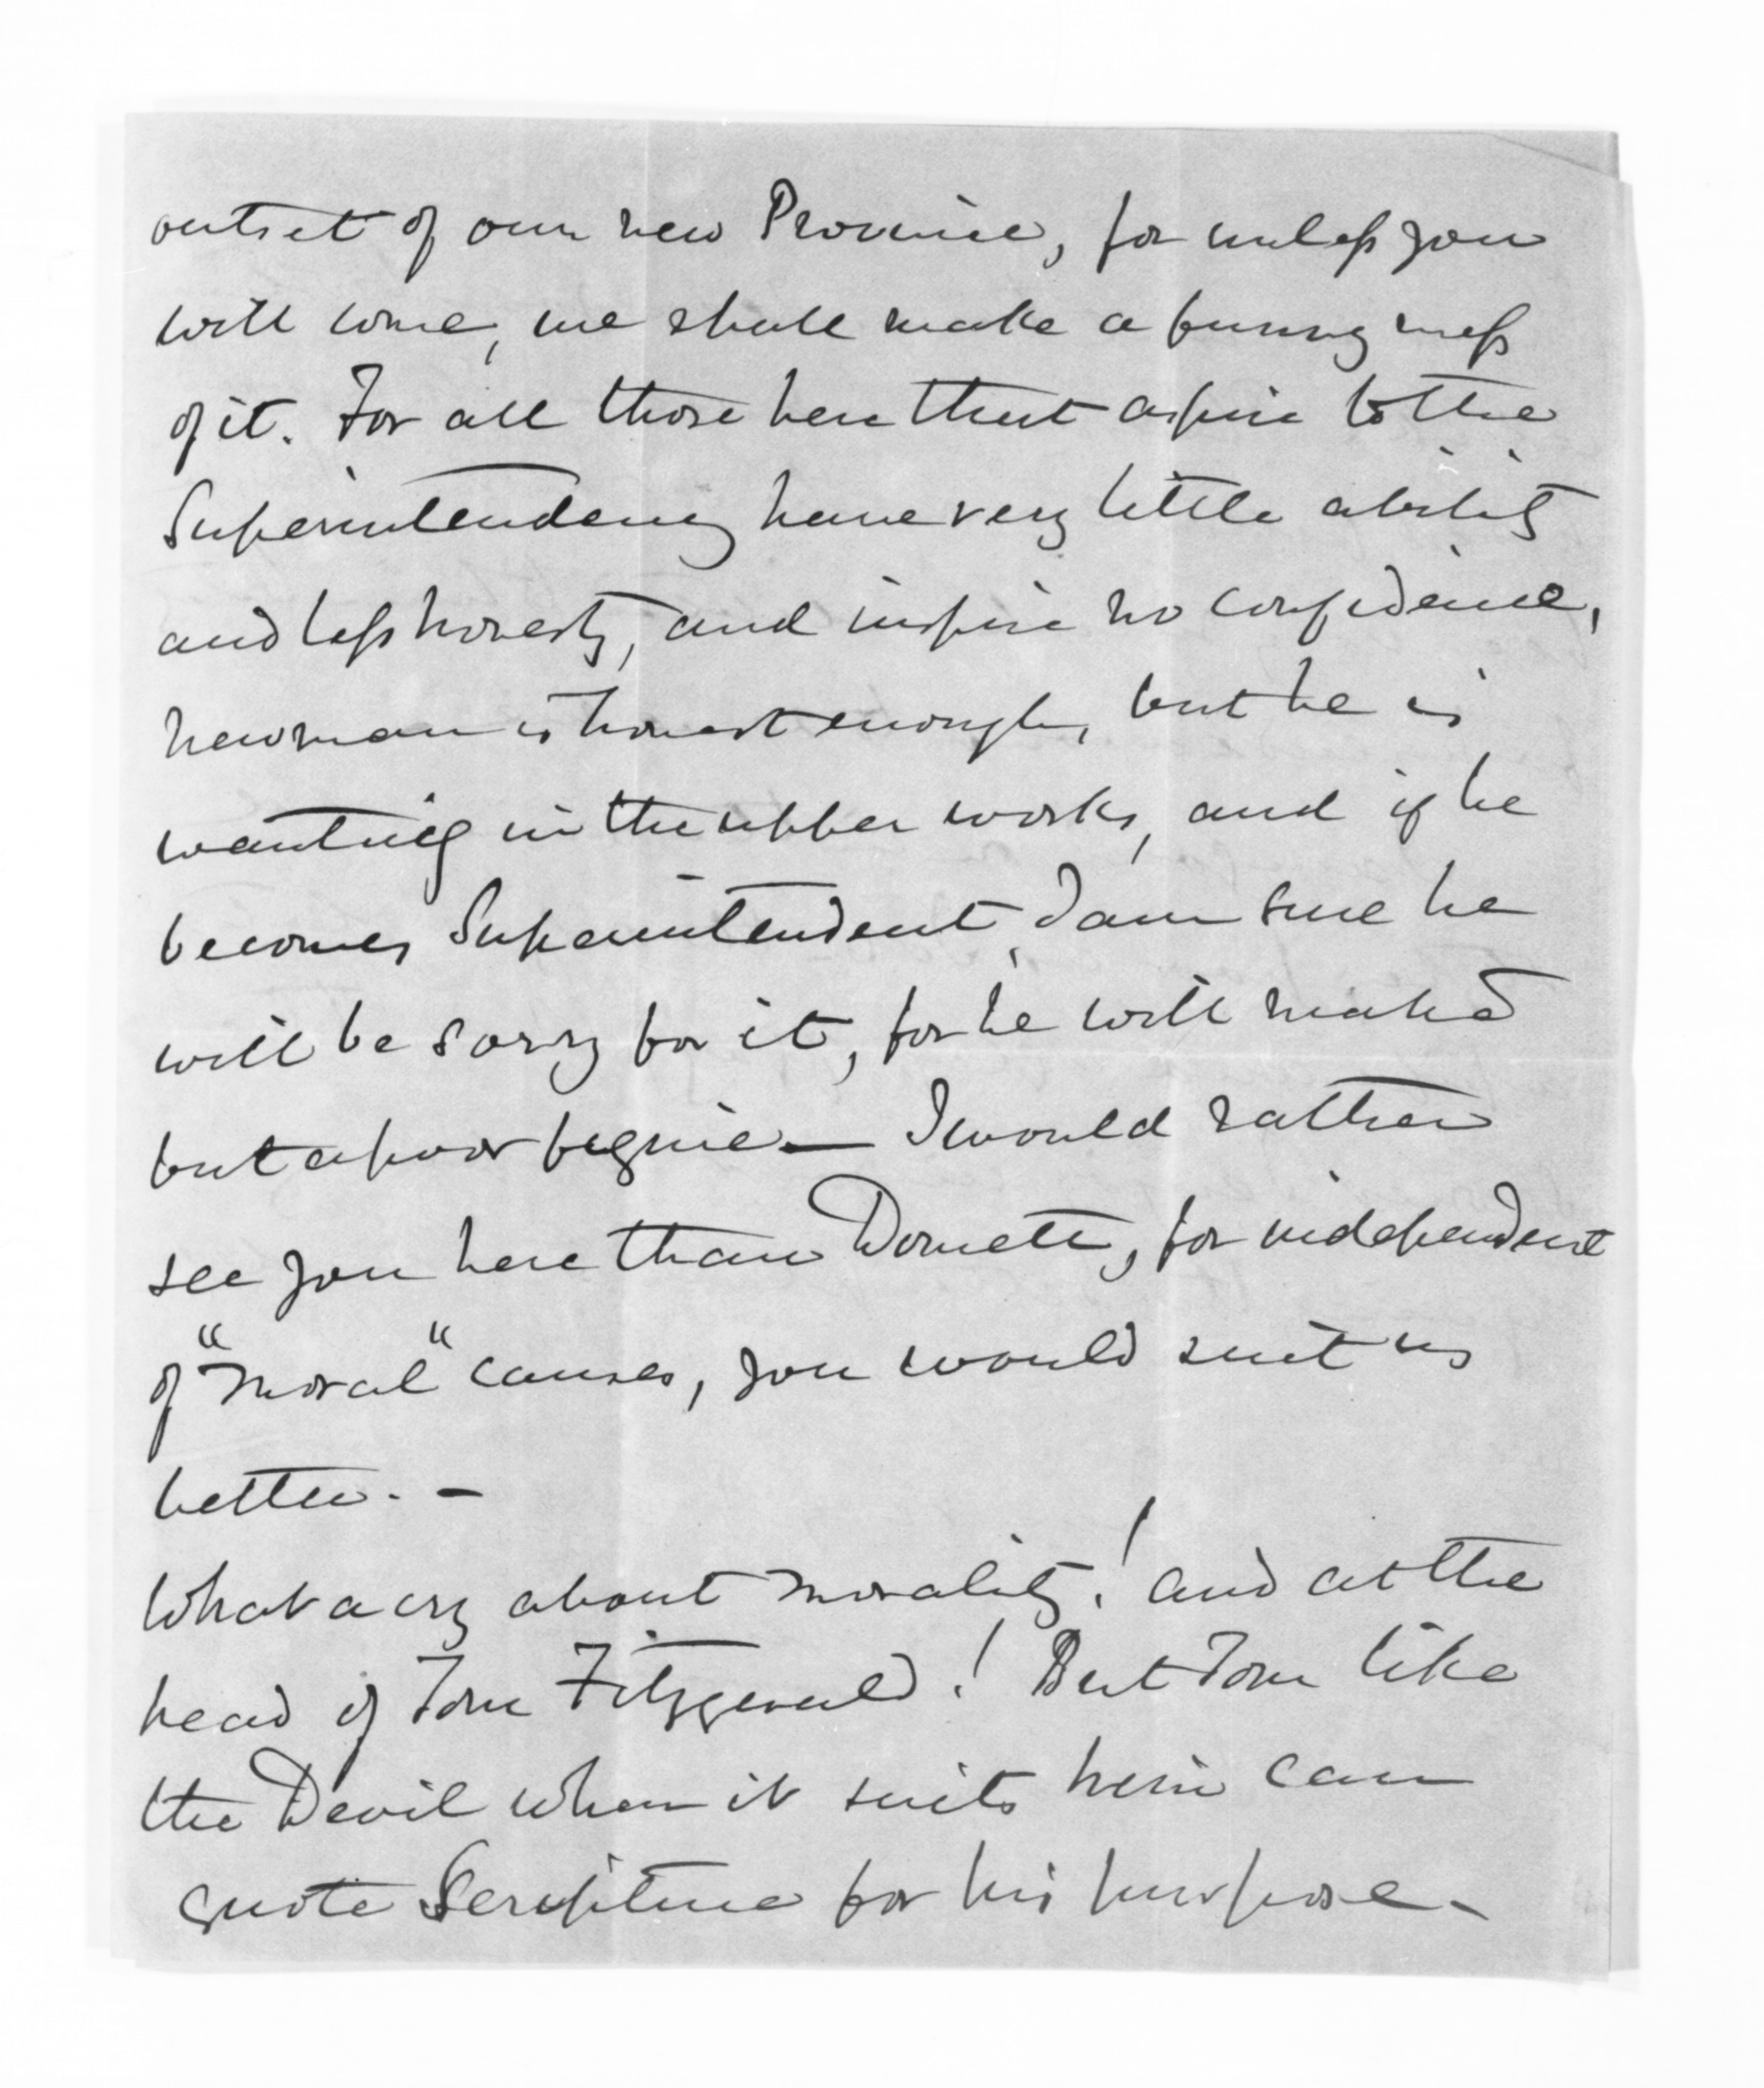 outset of our new Province, for unless you
will come, we shall make a funny mess
of it. For all those here that aspire to the
Superintendency have very little ability
and less honesty, and inspire no confidence,
Newman is honest enough, but he is
wanting in the upper works, and if he
becomes Superintendent, I am sure he
will be sorry for it, for he will make
but a poor figure — I would rather
see you here than Domett, for independent
of "moral" causes, you would suit us
better. -
What a cry about morality! and at the
head of Tom Fitzgerald! But Tom like
the Devil when it suits him can
quote Scripture for his purpose -